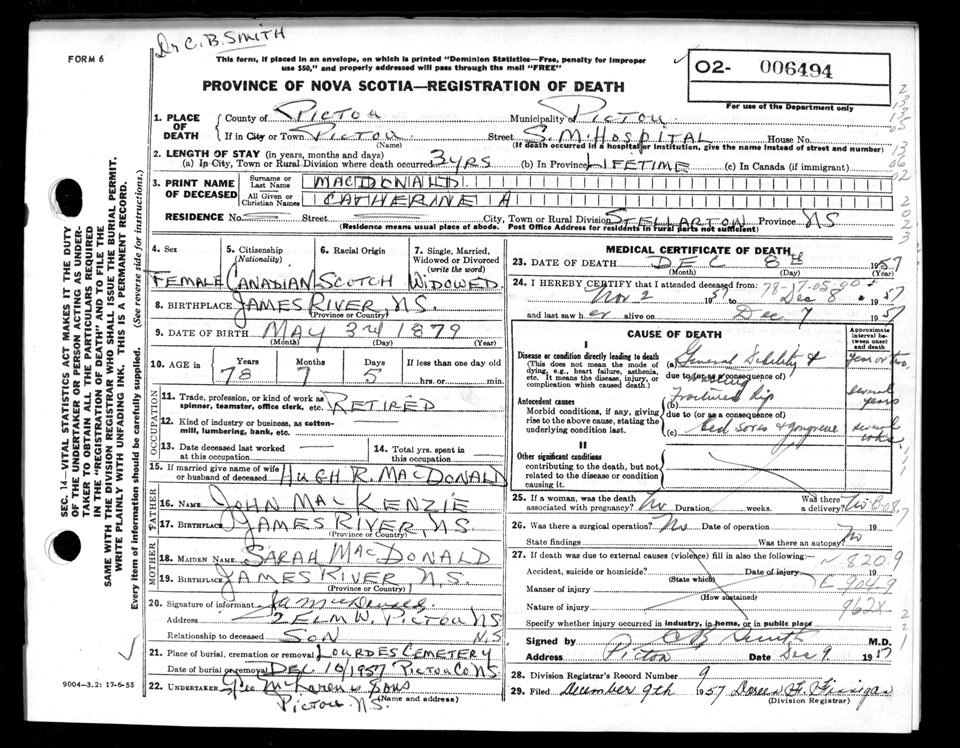 Dr C. B. SMITH
FORM 6
This form, if placed in an envelope, on which is printed "Dominion Statistics—Free, penalty for improper
use $50," and properly addressed will pass through the mail "FREE"
PROVINCE OF NOVA SCOTIA—REGISTRATION OF DEATH
O2- 006494
For use of the Department only
1. PLACE OF DEATH
County of PICTOU Municipality of PICTOU
If in City or Town PICTOU Street S. M. HOSPITAL House No.
(Name) (If death occurred in a hospital or institution, give the name instead of street and number)
2. LENGTH OF STAY (in years, months and days)
(a) In City, Town or Rural Division where death occurred 3 YRS (b) In Province LIFETIME (c) In Canada (if immigrant)
3. PRINT NAME OF DECEASED
Surname or Last Name MACDONALD
All Given or Christian Names CATHERINE A
RESIDENCE No. Street City, Town or Rural Division STELLARTON Province NS
(Residence means usual place of abode. Post Office Address for residents in rural parts not sufficient)
4. Sex 5. Citizenship (Nationality) 6. Racial Origin 7. Single, Married, Widowed or Divorced (write the word)
FEMALE CANADIAN SCOTCH WIDOWED
8. BIRTHPLACE JAMES RIVER N.S.
(Province or Country)
9. DATE OF BIRTH MAY 3rd 1879
(Month) (Day) (Year)
10. AGE in Years Months Days If less than one day old
78 7 5 hrs. or min.
OCCUPATION
11. Trade, profession, or kind of work as spinner, teamster, office clerk, etc. RETIRED
12. Kind of industry or business, as cotton-mill, lumbering, bank, etc.
13. Date deceased last worked at this occupation
14. Total yrs. spent in this occupation
15. If married give name of wife or husband of deceased HUGH R. MACDONALD
FATHER
16. Name JOHN MACKENZIE
17. Birthplace JAMES RIVER, N.S.
(Province or Country)
MOTHER
18. Maiden Name SARAH MACDONALD
19. Birthplace JAMES RIVER, N.S.
(Province or Country)
20. Signature of informant
Address 2 ELM W. PICTOU NS
Relationship to deceased SON N.S
21. Place of burial, cremation or removal LOURDES CEMETERY
Date of burial or removal DEC. 10/1957 PICTOU CO. N.S.
22. Undertaker Geo McLaren & Sons
PICTOU. N.S. (Name and address)
9004—3.2: 17-6-55
SEC. 14—VITAL STATISTICS ACT MAKES IT THE DUTY
OF THE UNDERTAKER OR PERSON ACTING AS UNDER-
TAKER TO OBTAIN ALL THE PARTICULARS REQUIRED
IN THE "REGISTRATION OF DEATH" AND TO FILE THE
SAME WITH THE DIVISION REGISTRAR WHO SHALL ISSUE THE BURIAL PERMIT.
WRITE PLAINLY WITH UNFADING INK. THIS IS A PERMANENT RECORD.
Every item of information should be carefully supplied. (See reverse side for instructions.)
MEDICAL CERTIFICATE OF DEATH
23. DATE OF DEATH DEC 8th 1957
(Month) (Day) (Year)
24. I HEREBY CERTIFY that I attended deceased from:
Nov 2 1957 to Dec 8 1957
and last saw her alive on Dec 7 1957
CAUSE OF DEATH
Approximate interval between onset and death
I
Disease or condition directly leading to death
(This does not mean the mode of dying, e.g., heart failure, asthenia, etc. It means the disease, injury, or complication which caused death.)
(a) General Debility &
due to (or as a consequence of)
Antecedent causes
Morbid conditions, if any, giving rise to the above cause, stating the underlying condition last.
(b) Fractured hip several years
due to (or as a consequence of)
(c) Bed sores & gangrene several wks.
II
Other significant conditions
contributing to the death, but not related to the disease or condition causing it.
25. If a woman, was the death associated with pregnancy? No Duration weeks. Was there a delivery? No
26. Was there a surgical operation? No Date of operation 19
State findings Was there an autopsy? No
27. If death was due to external causes (violence) fill in also the following:— N 820.9
Accident, suicide or homicide? Date of injury 19
(State which)
Manner of injury E 904-9
(How sustained)
Nature of injury 962X
Specify whether injury occurred in industry, in home, or in public place
Signed by C B Smith M.D.
Address Pictou Date Dec 9. 1957
28. Division Registrar's Record Number 9
29. Filed December 9th 1957 Doreen F. Finnigan
(Division Registrar)